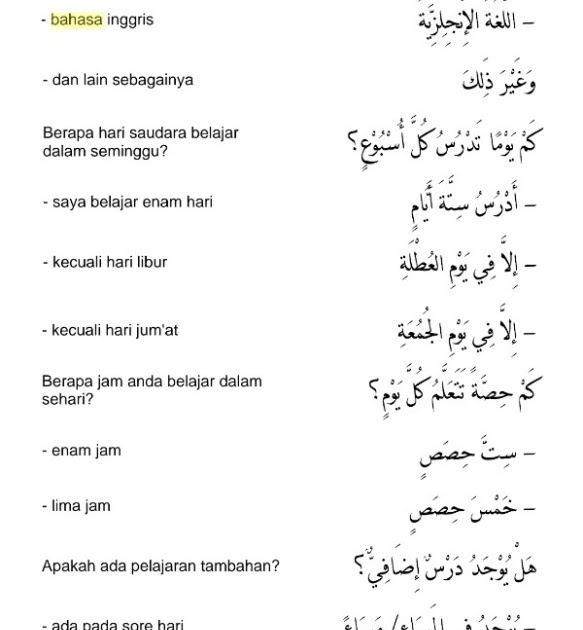 - bahasa inggris
– اللغة الإنجلزية
- dan lain sebagainya
وَغَيْرَ ذٰلِكَ
Berapa hari saudara belajar
dalam seminggu?
كَمْ يَوْمًا تَدْرُسُ كُلَّ أُسْبُوْعٍ؟
- saya belajar enam hari
– أَدْرُسُ سِتَّةَ أَيَّامٍ
- kecuali hari libur
– إِلاَّ فِي يَوْمِ العُطْلَةِ
- kecuali hari jum'at
– إِلاَّ فِي يَوْمِ الجُمُعَةِ
Berapa jam anda belajar dalam
sehari?
كَمْ حِصَّةً تَتَعَلَّمُ كُلَّ يَوْمٍ؟
- enam jam
– سِتَّ حِصَصٍ
- lima jam
– خَمْسَ حِصَصٍ
Apakah ada pelajaran tambahan?
هَلْ يُوْجَدُ دَرْسٌ إِضَافِيٌّ؟
- ada pada sore hari